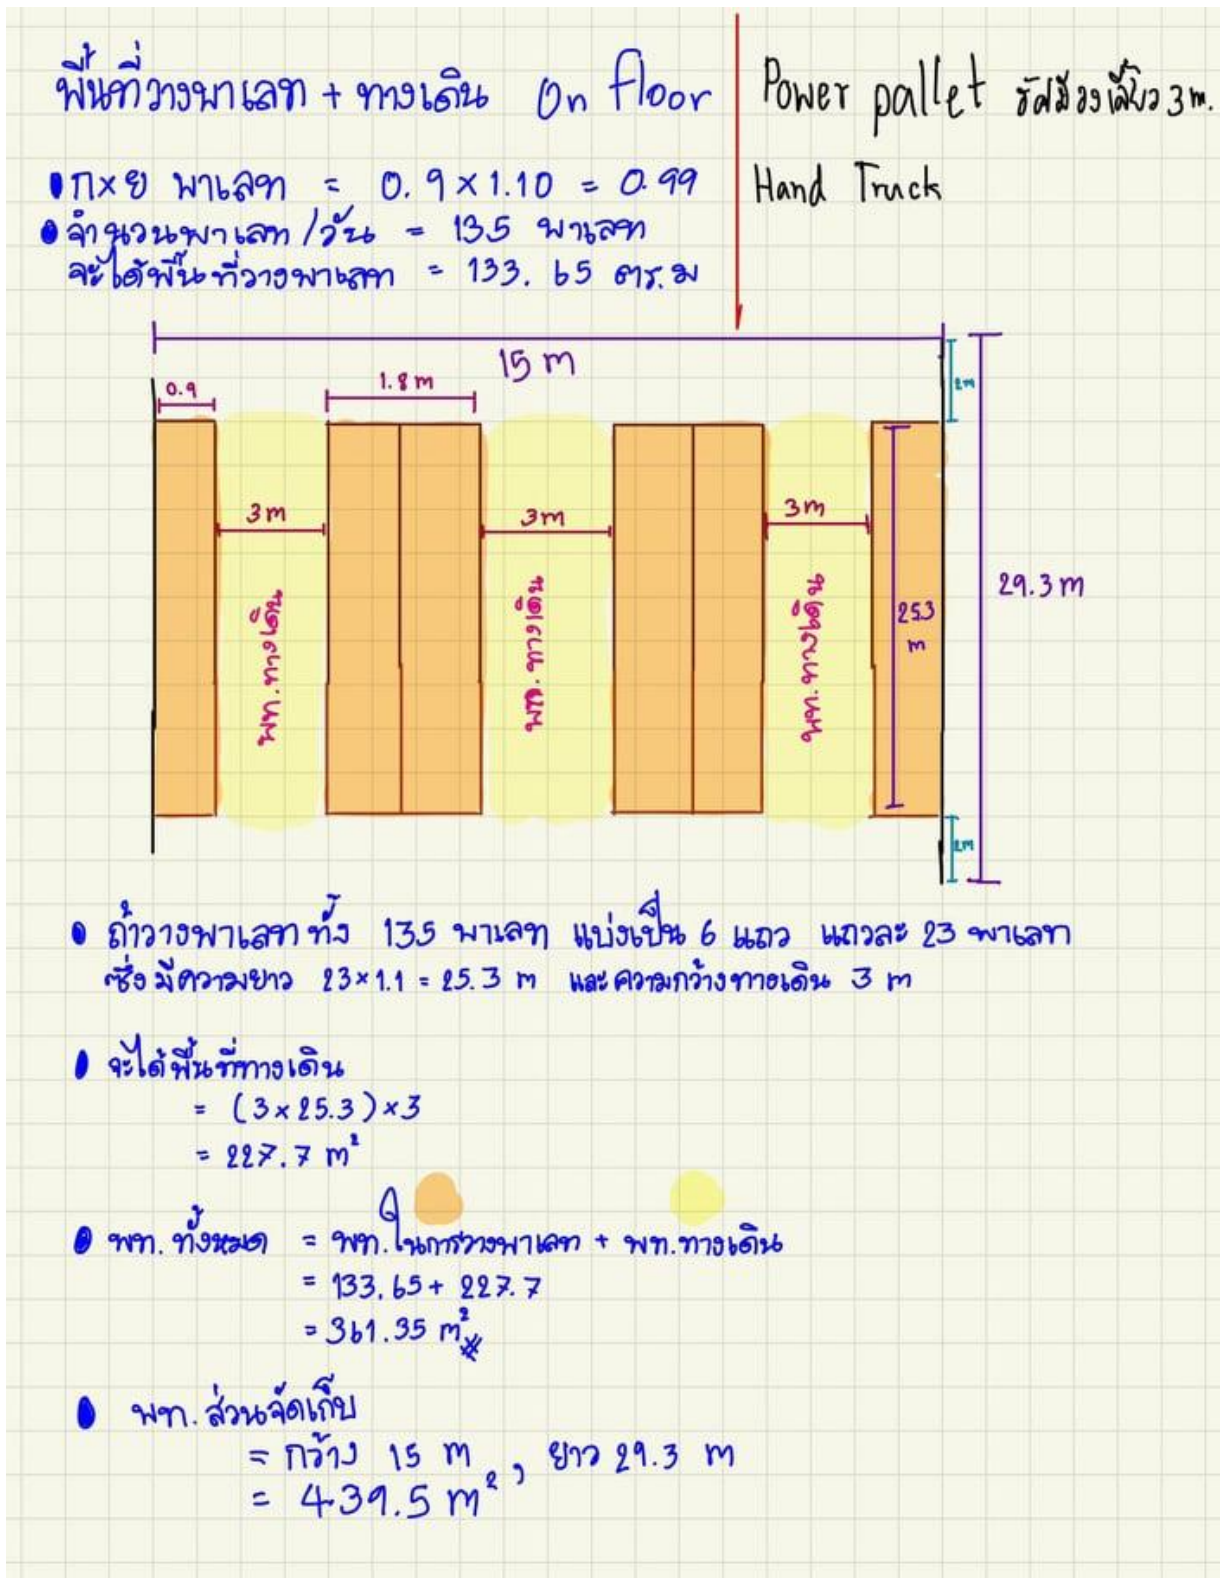 พื้นที่วางพาเลท + ทางเดิน On floor
Power pallet รัศมีวงเลี้ยว 3 m.
Hand Truck
กxย พาเลท = 0.9 x 1.10 = 0.99
จำนวนพาเลท /วัน = 135 พาเลท
จะได้พื้นที่วางพาเลท = 133.65 ตร.ม
15 m
0.9
1.8 m
2m
3 m
3m
3 m
พท. ทางเดิน
พท. ทางเดิน
พท. ทางเดิน
25.3
m
29.3 m
2m
ถ้าวางพาเลท ทั้ง 135 พาเลท แบ่งเป็น 6 แถว แถวละ 23 พาเลท
ซึ่งมีความยาว 23 x 1.1 = 25.3 m และความกว้างทางเดิน 3 m
จะได้พื้นที่ทางเดิน
= (3 x 25.3) x 3
= 227.7 m²
พท. ทั้งหมด = พท. ในการวางพาเลท + พท. ทางเดิน
= 133.65 + 227.7
= 361.35 m²
พท. ส่วนจัดเก็บ
= กว้าง 15 m , ยาว 29.3 m
= 439.5 m²